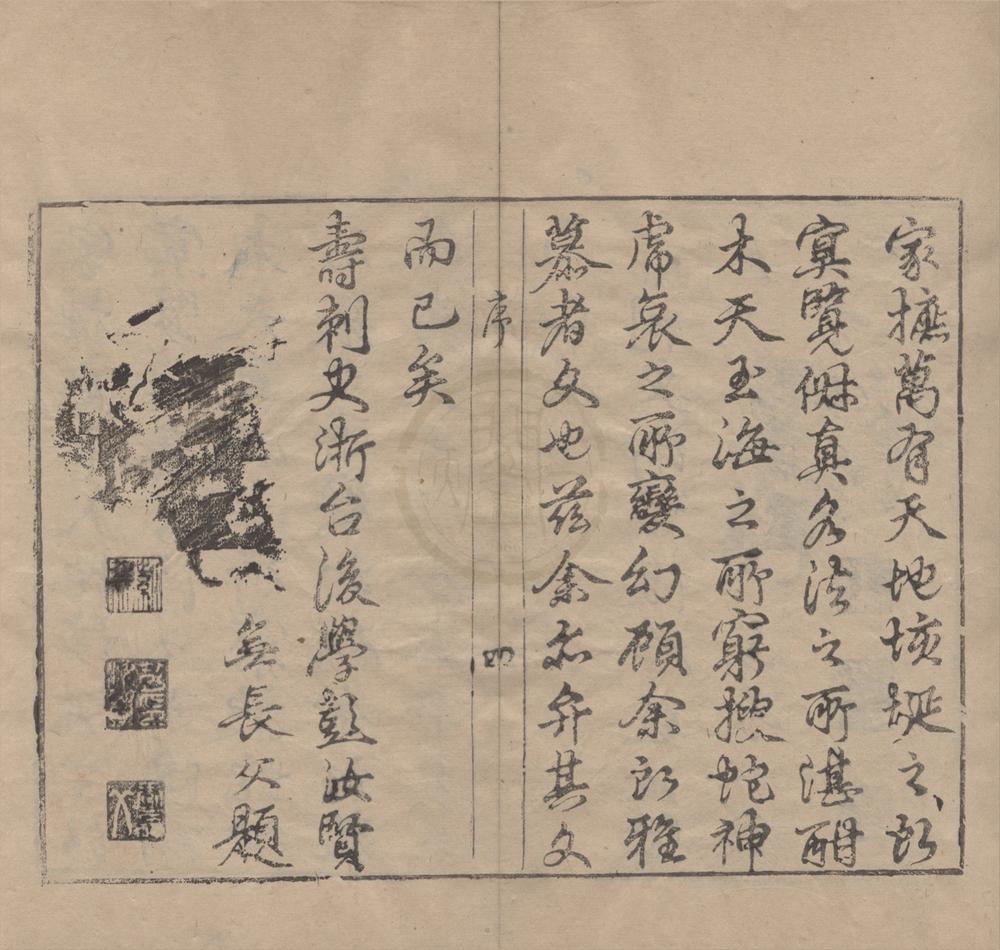 家摭萬有天地垓埏之所
冥覽俶真名法之所湛酣
木天玉海之所窮搜蛇神
虎哀之所變幻顧余所雅
慕者文也茲余亦弁其文
序 四
而已矣
壽刺史浙台後學彭汝賢
無長父題